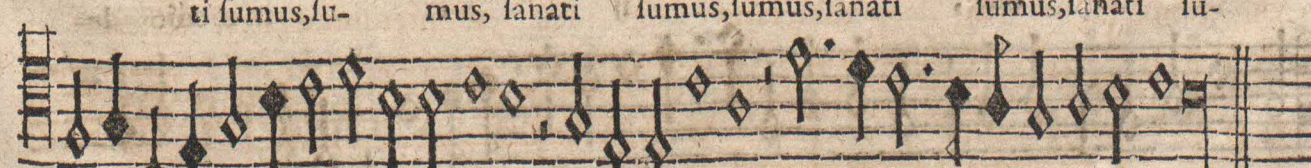 ti ſumus,ſu- mus, ſanati ſumus,ſumus,ſanati ſumus,ſanati ſu-